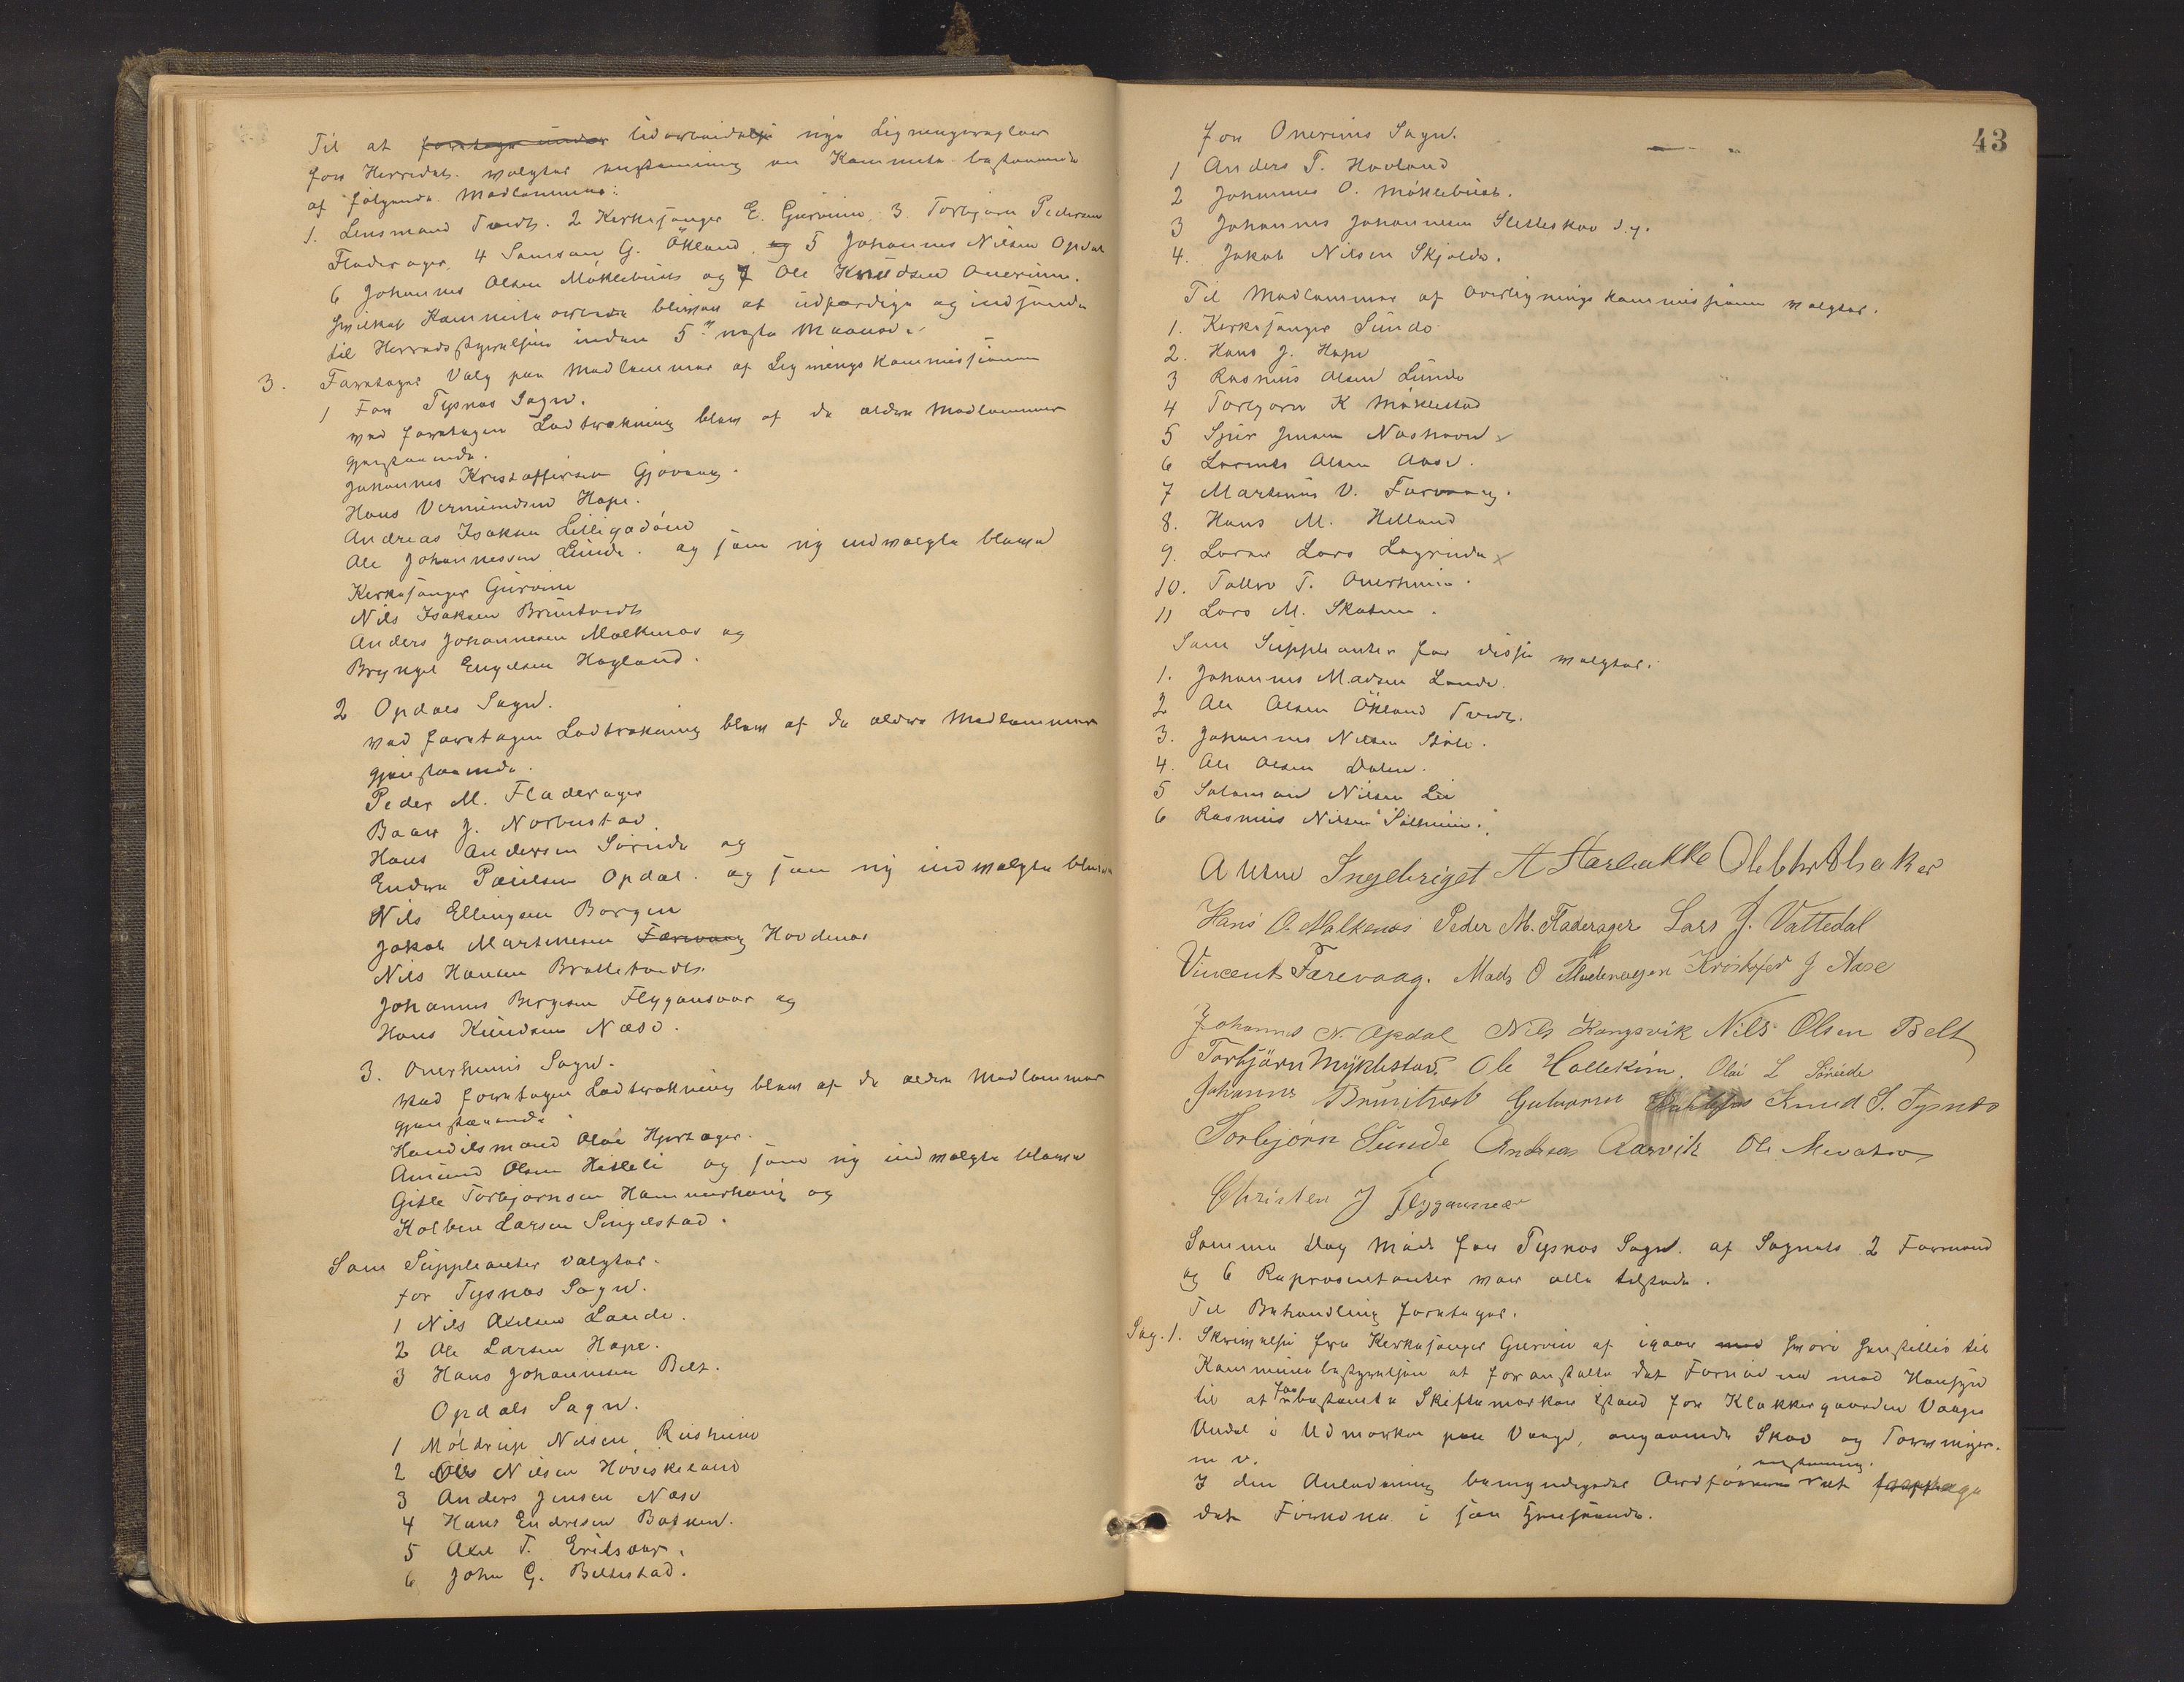 Til at foretage under Udarbeidelse nye Ligningsregler
for Herredet valgtes enstemmig en Kommite bestaaende
af følgende Medlemmer:
1. Lensmand Tveidt. 2 Kirkesanger E. Gurvine, 3. Torbjørn Pedersen
Fladerager, 4 Samson G. Økland, og 5 Johannes Nilsen Opdal
6 Johannes Olsen Møklebust og 7 Ole Knudsen Onerim.
hvilket Kommite arbeide bliver at udfærdige og indsende
til Herredsstyrelsen inden 5 næste Maaned.
3. Foretoges Valg paa Medlemmer af Ligningskommissionen
1 For Tysnes Sogn.
Ved foretagen Lodtrækning blev af de ældre Medlemmer
gjenstaaende.
Johannes Kristoffersen Gjøvaag.
Hans Vermundsen Hope.
Andreas Isaksen Lillegadøen
Ole Johannessen Lunde. og som ny indvalgte bleve
Kirkesanger Gurvine
Nils Isaksen Bruntveidt
Anders Johannesen Malkenes og
Bryngel Engelsen Hagland.
2 Opdals Sogn.
Ved foretagen Lodtrækning blev af de ældre Medlemmer
gjenstaaende.
Peder M. Fladerager
Baar J. Norbustad
Hans Andersen Sørude og
Endre Paulsen Opdal. og som ny indvalgte bleve
Nils Ellingsen Borgen
Jakob Martinesen Færevaag Hovdenes
Nils Hansen Brattetveidt.
Johannes Bergesen Flygansvær og
Hans Knudsen Næse.
3. Onerheims Sogn.
Ved foretagen Lodtrækning blev af de ældre Medlemmer
gjenstaaende
Handelsmand Olai Hjortager.
Amund Olsen Hetleli og som ny indvalgte bleve
Gitle Torbjørnsen Hammerhoug og
Kolben Larsen Singelstad.
Som Suppleanter valgtes.
for Tysnes Sogn.
1 Nils Axelsen Lande.
2 Ole Larsen Hope.
3 Hans Johannesen Belt.
Opdals Sogn.
1 Møldrup Nilsen Reisheim
2 Ole Nilsen Hoviskeland
3 Anders Jensen Næse
4 Hans Endresen Botnen.
5 Axel T. Eridsvær.
6 John G. Beltestad.
43
for Onerims Sogn.
1 Anders T. Hovland
2 Johannes O. Møklebust.
3 Johannes Johannesen Sletteskov d.y.
4. Jakob Nilsen Skjolde.
Til Medlemmer af Overligningskommissionen valgtes.
1. Kirkesanger Sunde
2. Hans J. Hope
3 Rasmus Olsen Lunde
4 Torbjørn K Møklestad
5 Sjur Jensen Neshavn x
6 Lorents Olsen Aase.
7 Martinus V. Færevaag.
8. Hans M. Helland
9. Lærer Lars Løgreide x
10. Tollev T. Onerheim.
11 Lars M. Skaten.
Som Suppleanter for disse valgtes.
1. Johannes Madsen Lande.
2 Ole Olsen Økland Tveidt.
3. Johannes Nilsen Støle.
4. Ole Olsen Dalen.
5 Salomon Nilsen Lie
6 Rasmus Nilsen Solheim.
A Uene Ingebrigt A Hærbakke Ole Chr Alsaker
Hans O. Malkenes Peder M. Fladerager Lars J. Vattedal
Vincent Færevaag. Mads O Fladerager Kristofer J Aase
Johannes N. Opdal Nils Kongsvik Nils Olsen Belt
Torbjørn Myklestad. Ole Hallekim. Olai L Søreide
Johannes Bruntvedt Guttorm Knud S. Tysnes
Torbjørn Sunde Andreas Aarvik Ole Mevatne
Christen J Flygansvær
Samme Dag Møde for Tysnes Sogn. af Sognets 2 Formænd
og 6 Repræsentanter var alle tilstede.
Til Behandling foretoges.
Sag. 1. Skrivelse fra Kirkesanger Gurvin af igaar med hvori henstilles til
Kommunebestyrelsen at foranstalte det Fornødne med Hensyn
til at faa bestemte Skiftemærker istand for Klokkergaarden Vaages
Andel i Udmarken paa Vaage, angaaende Skov og Torvmyr.
m v. enstemmig.
I den Anledning bemyndigedes Ordføreren at foretage
det Fornødne i saa Henseende.